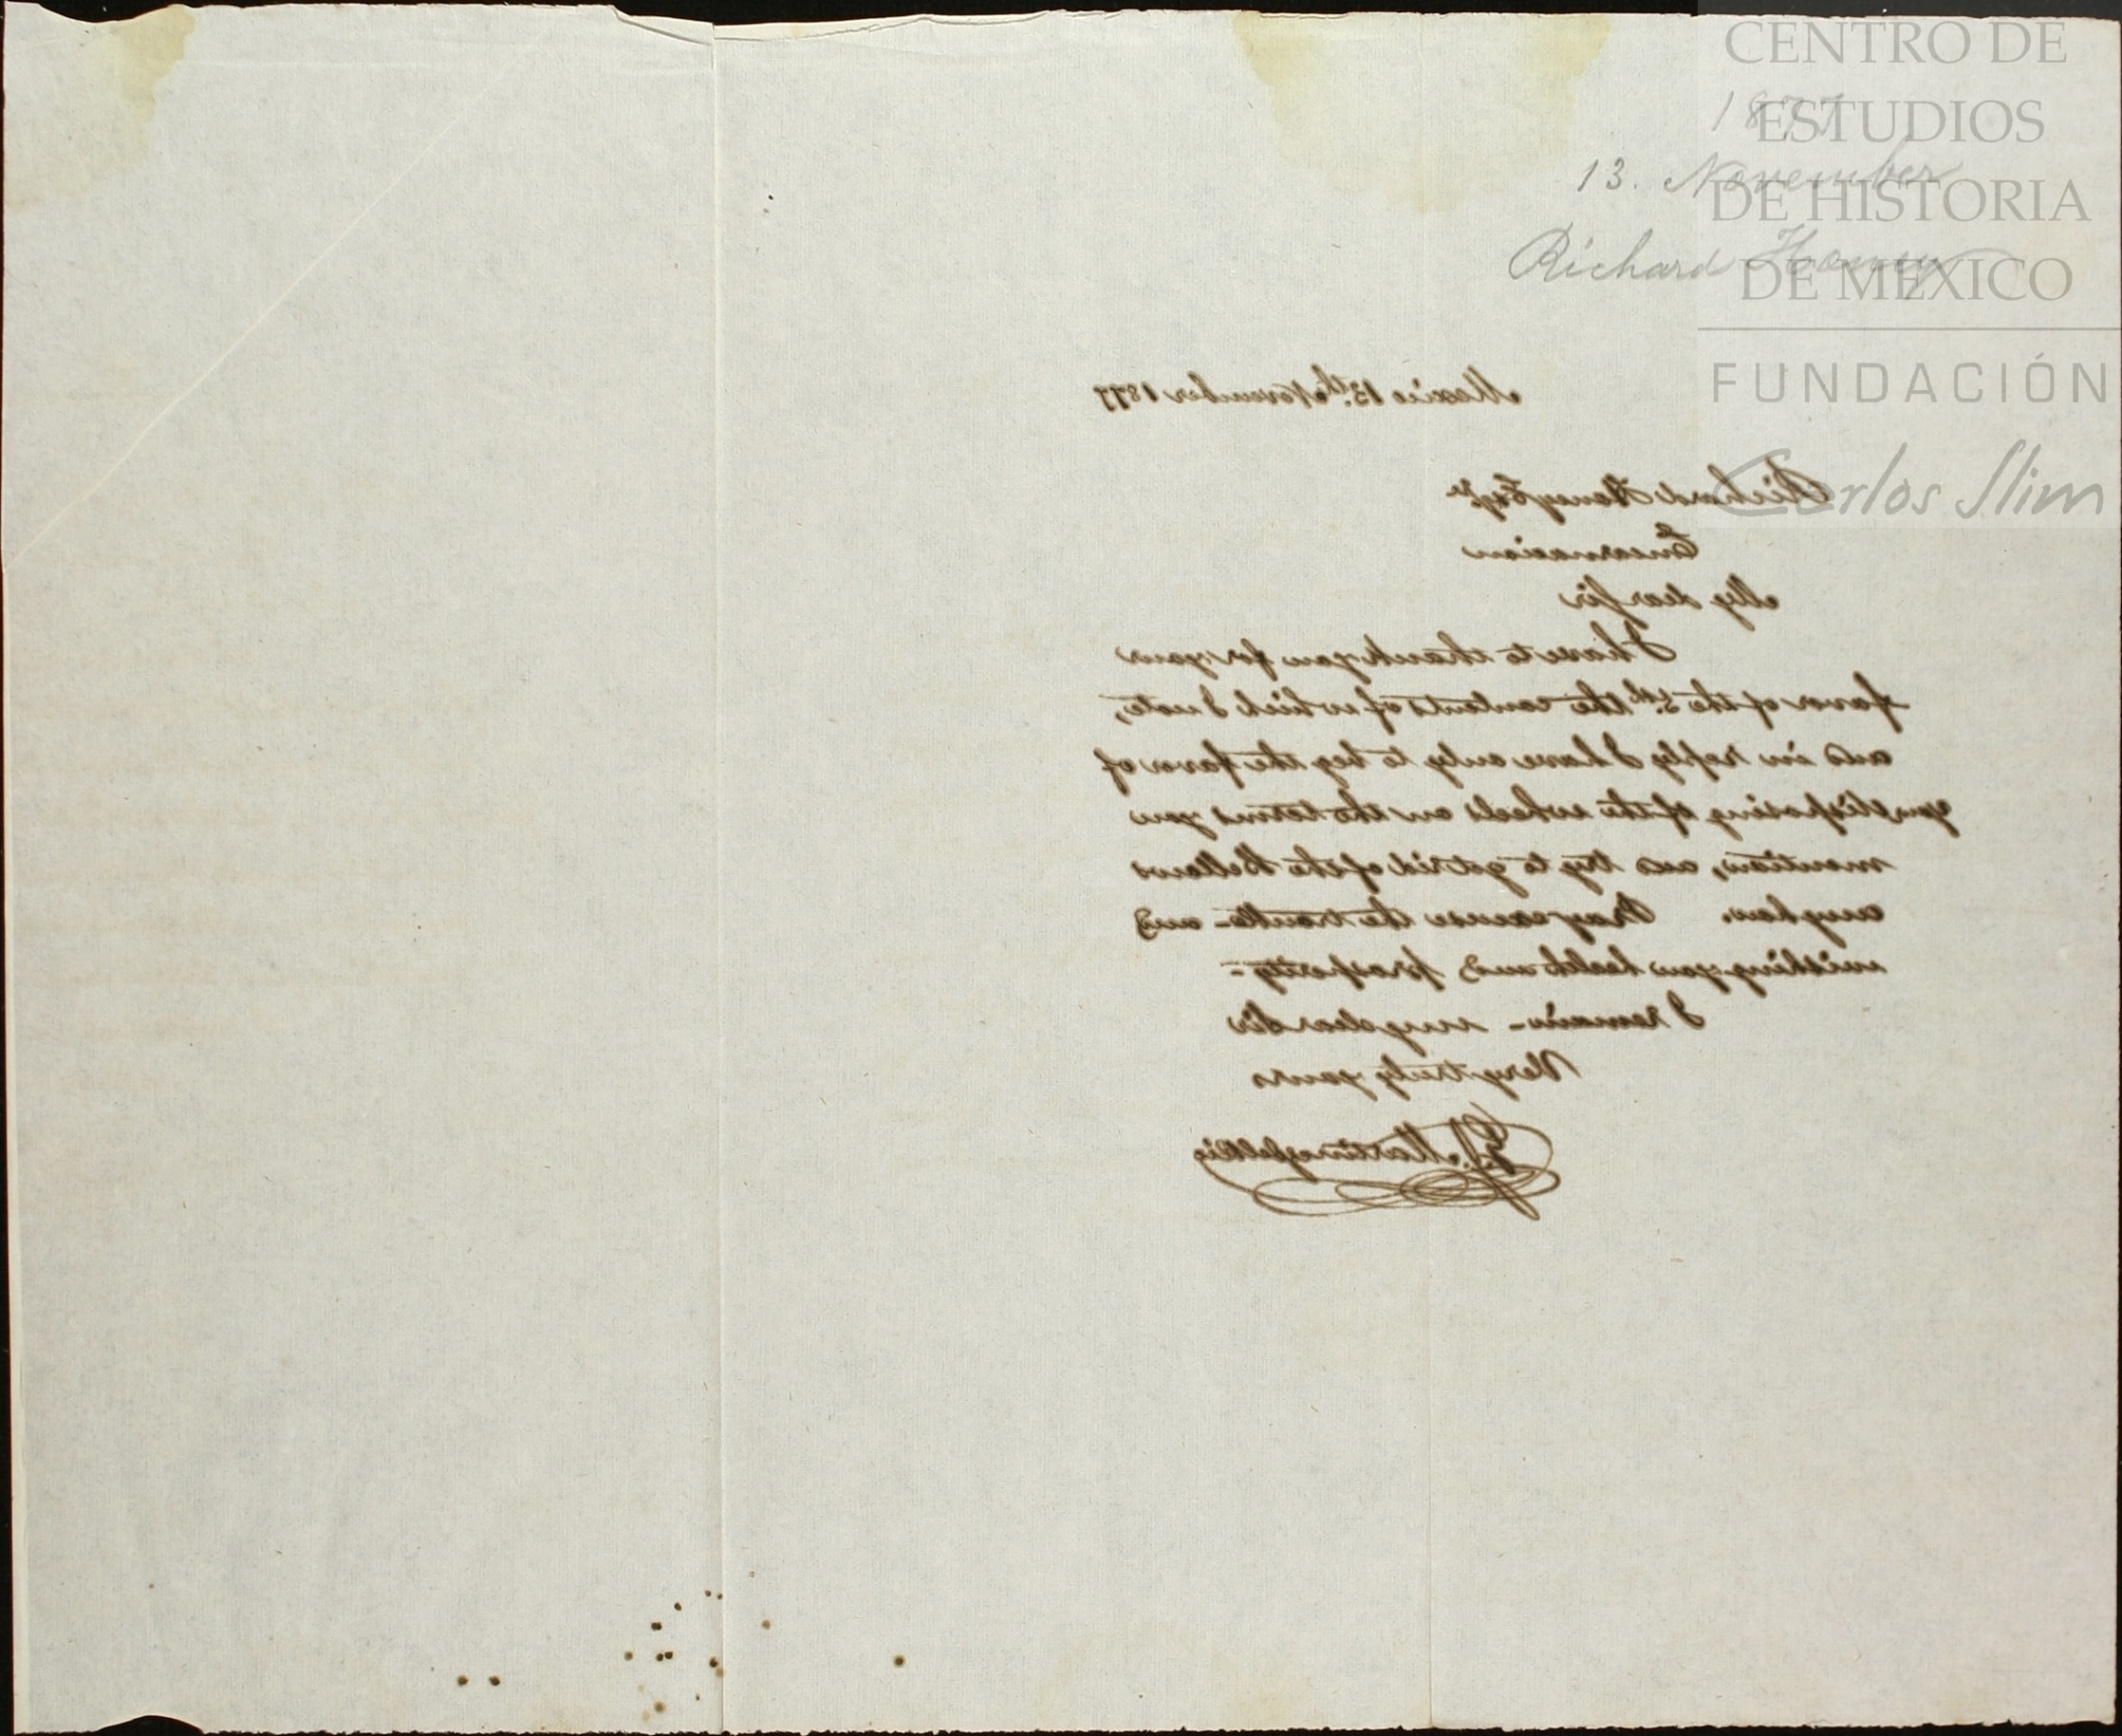 CENTRO DE
ESTUDIOS
DE HISTORIA
DE MÉXICO
FUNDACIÓN
Carlos Slim
1877
13. November
Richard Honey
Mexico 13.th November 1877
Richard Honey Esqre
Encarnacion
My dear Sir
I have to thank you for your
favor of the 5.th the contents of which I note,
and in reply I have only to beg the favor of
your disposing of the wheels on the terms you
mention, and try to get rid of the Bellows
anyhow. Pray excuse the trouble - and
wishing you health and prosperity -
I remain - my dear Sir
Very truly yours